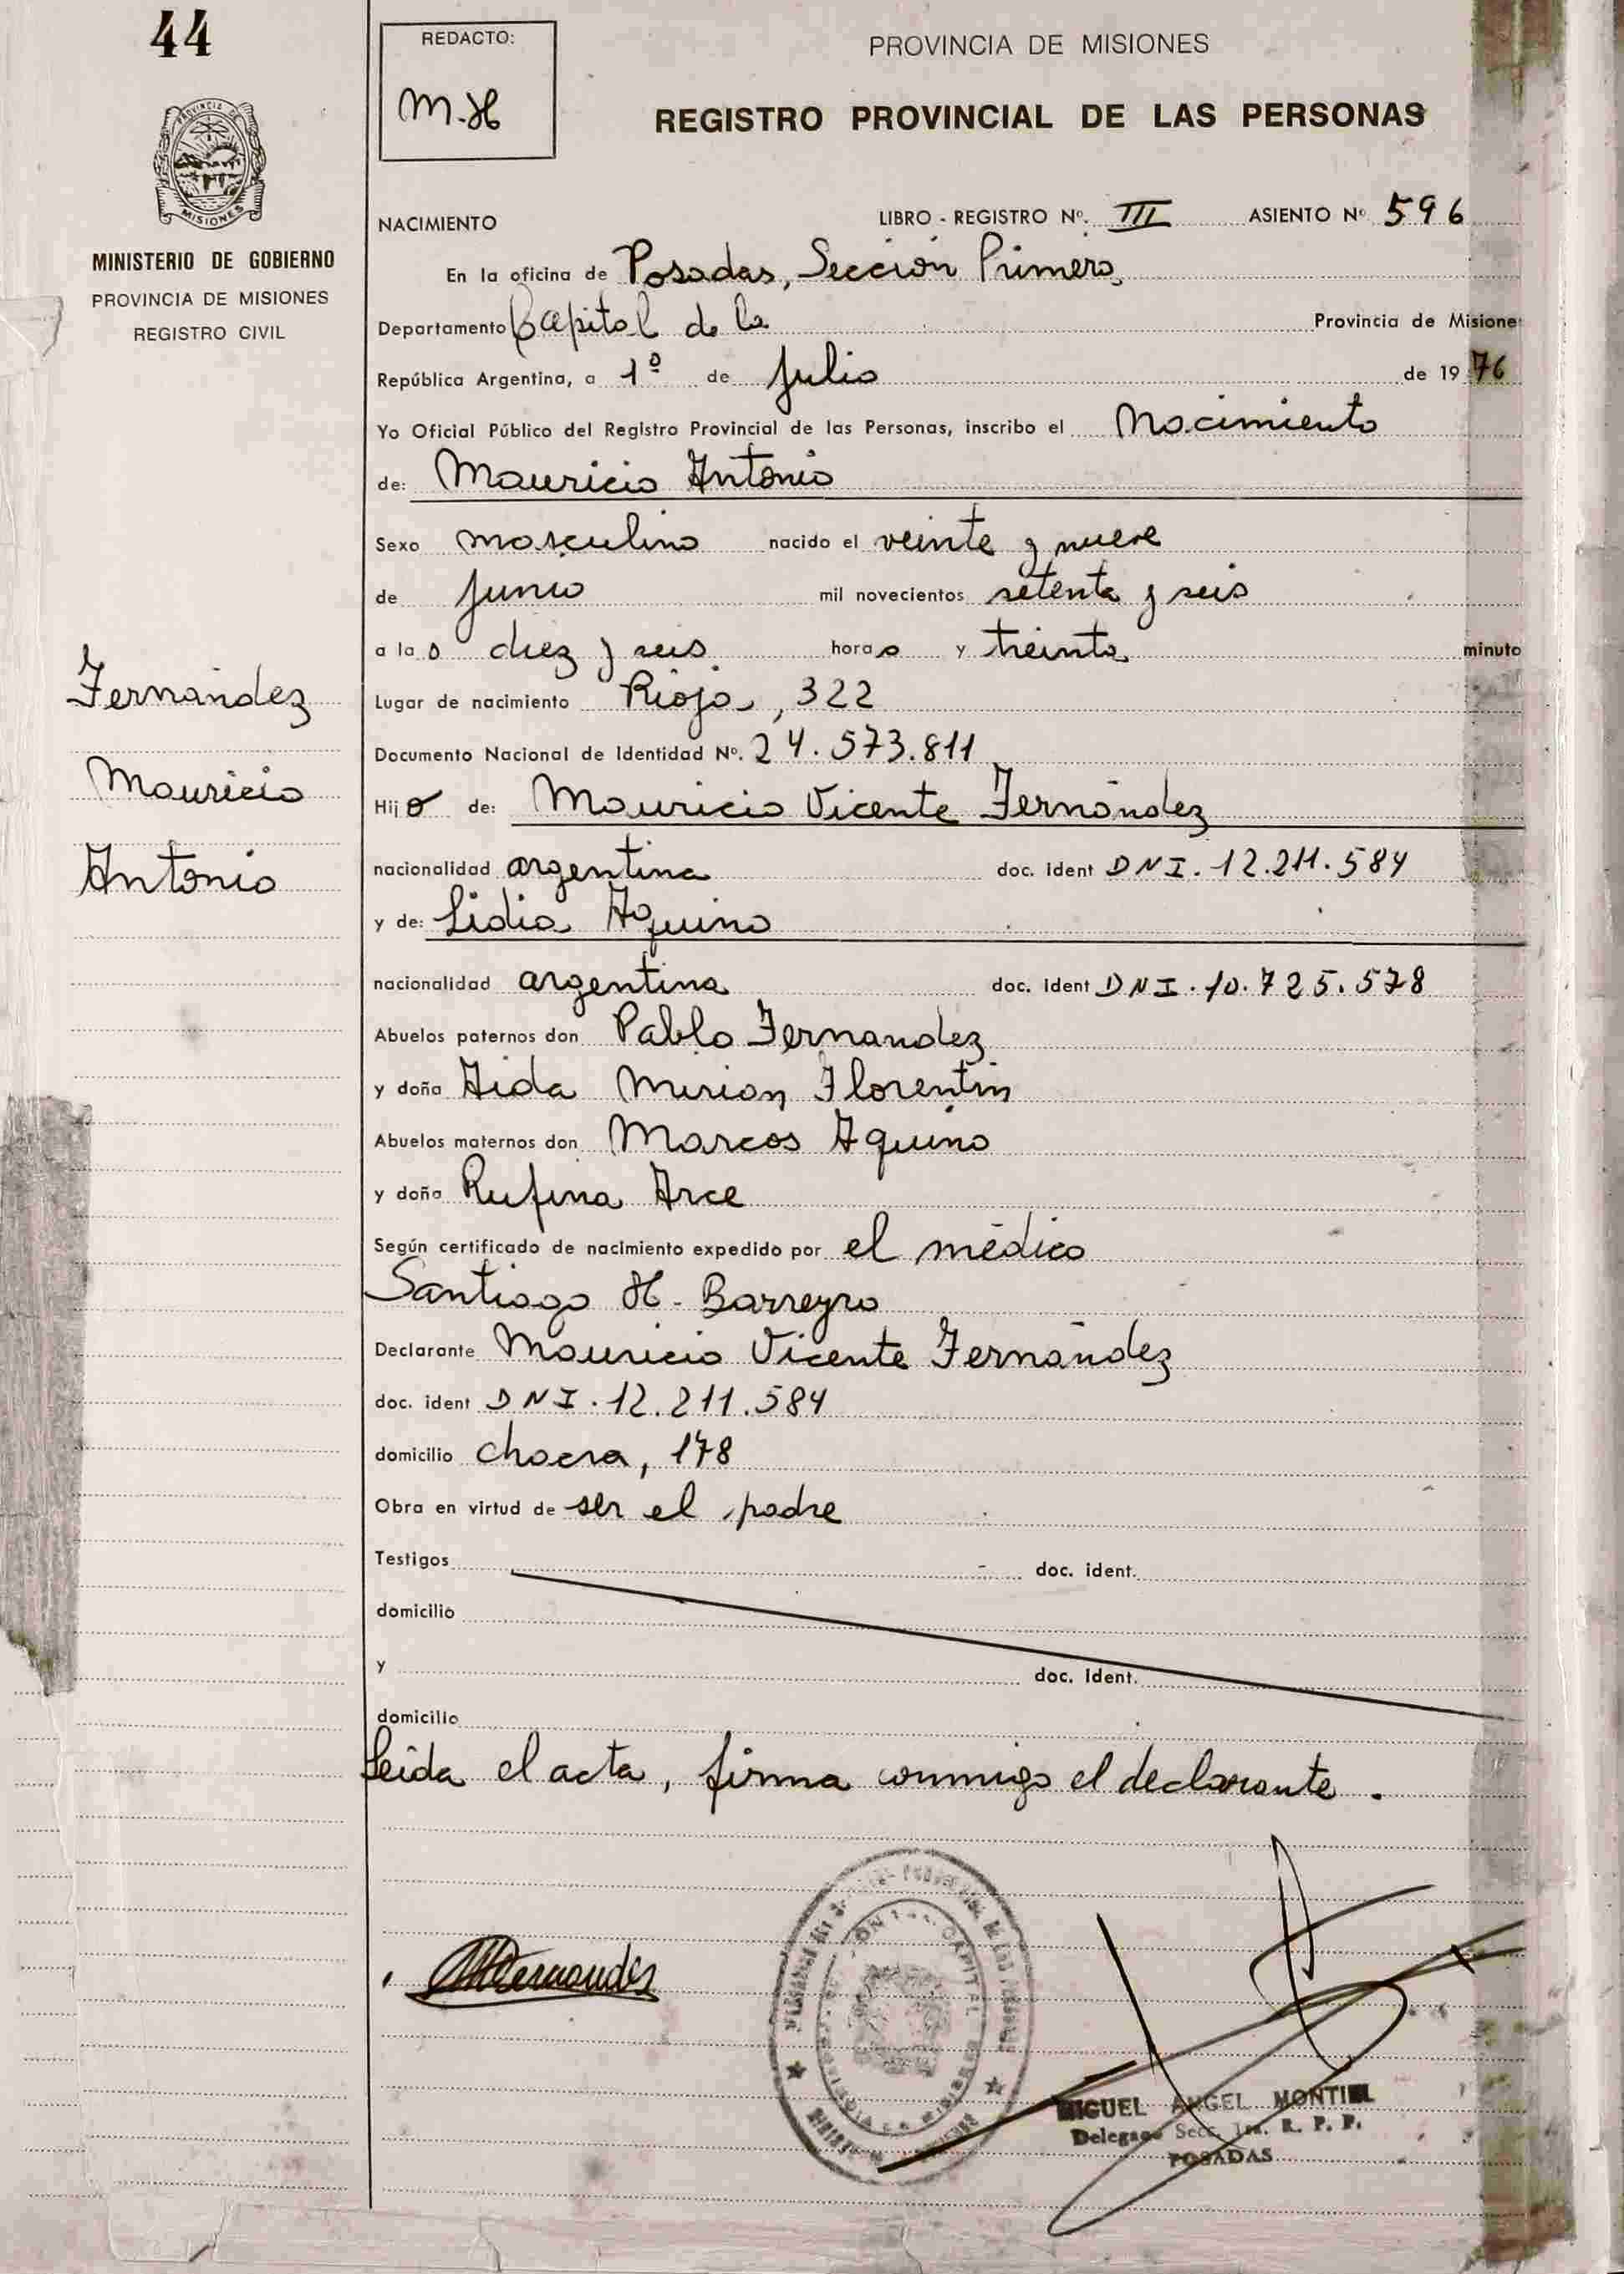 44
REDACTO:
M.H
PROVINCIA DE MISIONES
REGISTRO PROVINCIAL DE LAS PERSONAS
PROVINCIA DE
MISIONES
MINISTERIO DE GOBIERNO
PROVINCIA DE MISIONES
REGISTRO CIVIL
NACIMIENTO LIBRO - REGISTRO Nº. III ASIENTO Nº 596
En la oficina de Posadas, Sección Primera
Departamento Capital de la Provincia de Misione
República Argentina, a 1º de Julio de 19 76
Yo Oficial Público del Registro Provincial de las Personas, inscribo el Nacimiento
de: Mauricio Antonio
Sexo masculino nacido el veinte y nueve
de Junio mil novecientos setenta y seis
a la s diez y seis horas y treinta minuto
Fernández
Mauricio
Antonio
Lugar de nacimiento Rioja, 322
Documento Nacional de Identidad Nº. 24.573.811
Hijo de: Mauricio Vicente Fernández
nacionalidad argentina doc. ident DNI. 12.211.584
y de: Lidia Aquino
nacionalidad argentina doc. ident DNI. 10.725.578
Abuelos paternos don Pablo Fernandez
y doña Aida Mirian Florentín
Abuelos maternos don Marcos Aquino
y doña Rufina Arce
Según certificado de nacimiento expedido por el médico
Santiago H. Barreyro
Declarante Mauricio Vicente Fernández
doc. ident DNI. 12.211.584
domicilio chacra, 178
Obra en virtud de ser el padre
Testigos doc. ident.
domicilio
y doc. ident.
domicilio
Leida el acta, firma conmigo el declarante.
MFernandez
MIGUEL ANGEL MONTIEL
Delegado Secc. 1ra. R. P. P.
POSADAS